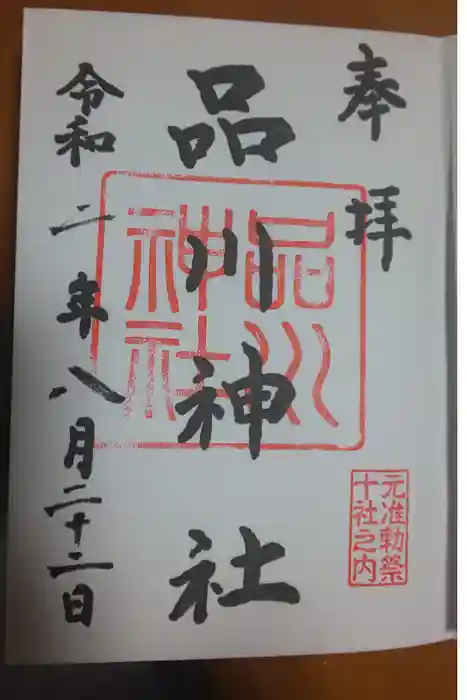 奉拝
品川神社
品川神社
元准勅祭
十社之内
令和二年八月二十二日